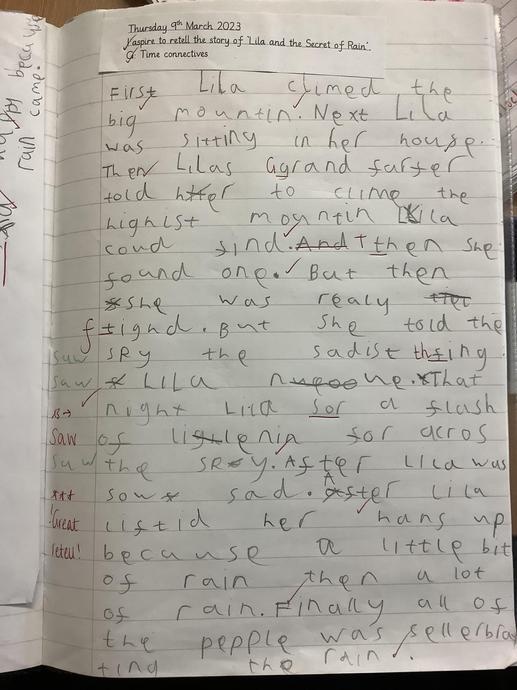 Thursday 9th March 2023
I aspire to retell the story of 'Lila and the Secret of Rain'.
G: Time connectives
happy because
rain came.
First Lila climed the
big mountin. Next Lila
was sitting in her house.
Then Lilas Ggrand farfer
told her to clime the
highist mountin Lila
coud find. And Tthen she
found one. But then
she was realy
ftignd. But she told the
saw sRy the sadist thsing
saw LILA ne. That
B→ night Lila sor a flash
saw of litenin for acros
saw the sRy. After Lila was
sow sad. After Lila
Great listid her hans up
retell! because a little bit
of rain then a lot
of rain. Finally all of
the pepple was sellerbra
ting the rain.